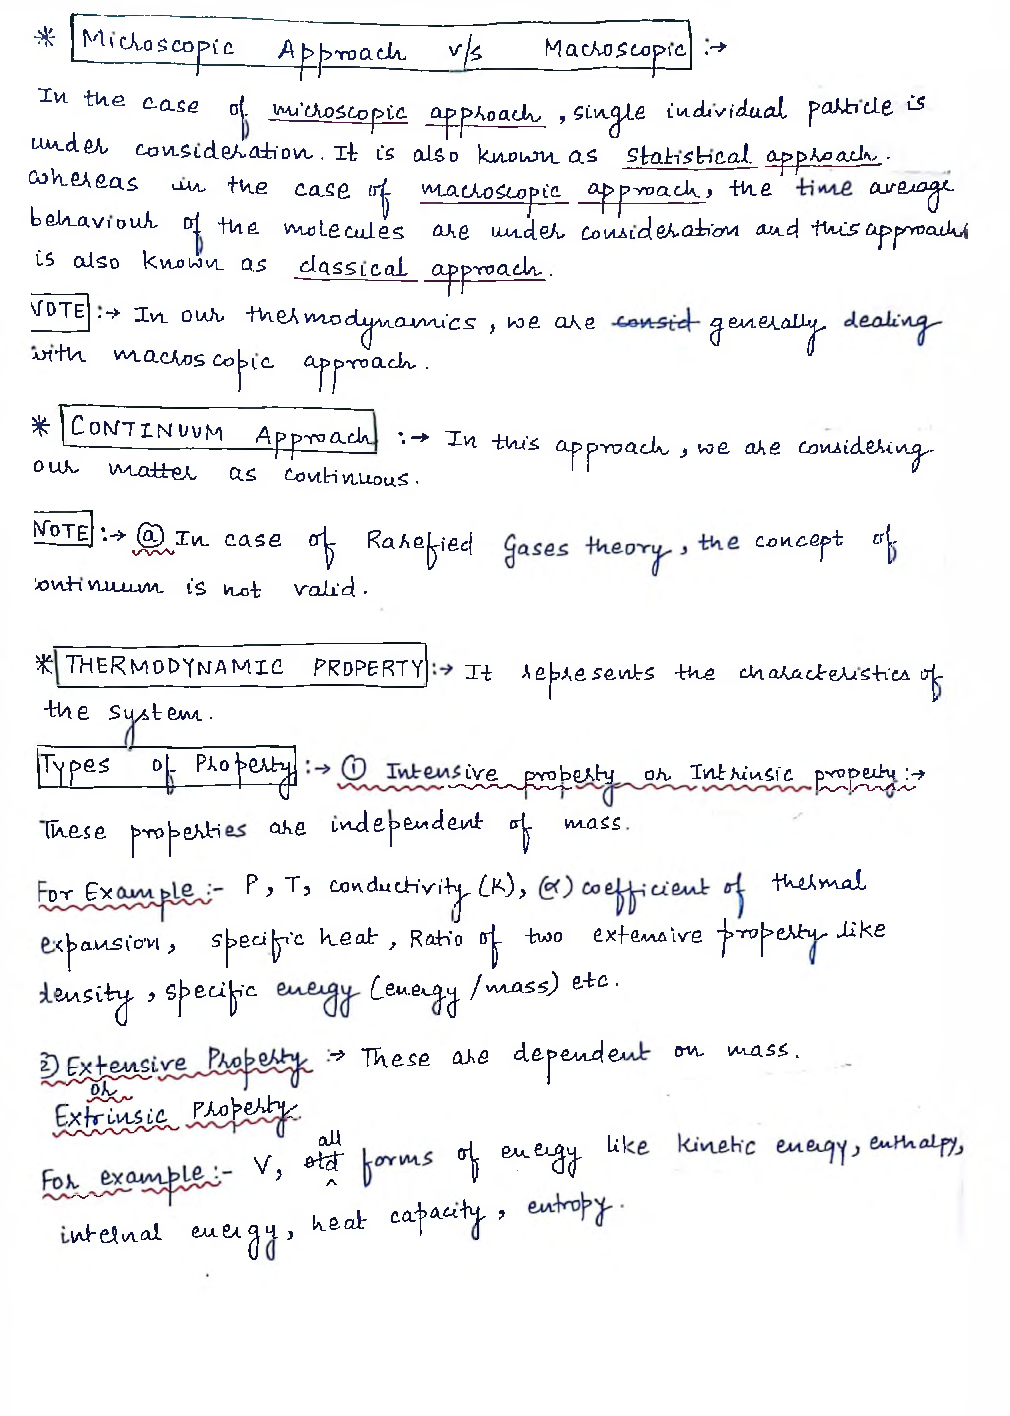 * Microscopic Approach v/s Macroscopic :→
In the case of microscopic approach, single individual particle is
under consideration. It is also known as statistical approach.
whereas in the case of macroscopic approach, the time average
behaviour of the molecules are under consideration and this approach
is also known as classical approach.
NOTE :→ In our thermodynamics, we are consid generally dealing
with macroscopic approach.
* CONTINUUM Approach :→ In this approach, we are considering
our matter as continuous.
NOTE :→ (a) In case of Rarefied Gases theory, the concept of
continuum is not valid.
* THERMODYNAMIC PROPERTY :→ It represents the characteristics of
the system.
Types of Property :→ ① Intensive property or Intrinsic property :→
These properties are independent of mass.
For Example :- P, T, conductivity (K), (α) coefficient of thermal
expansion, specific heat, Ratio of two extensive property like
density, specific energy (energy/mass) etc.
2) Extensive Property :→ These are dependent on mass.
or
Extrinsic Property
For example :- V, all forms of energy like kinetic energy, enthalpy,
internal energy, heat capacity, entropy.